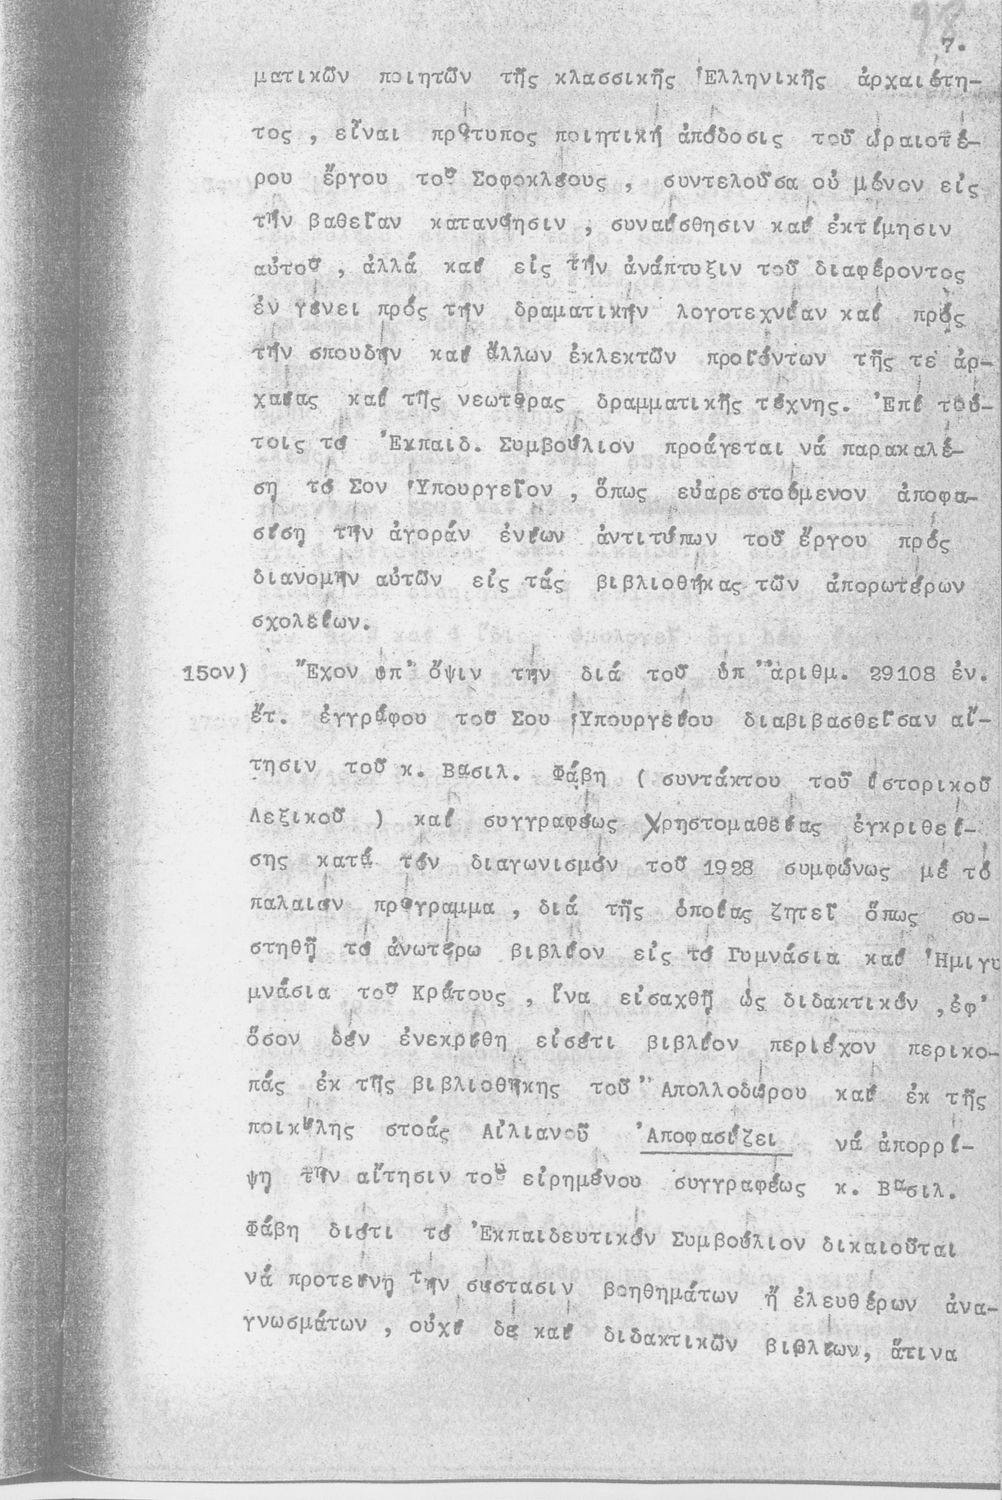 98
7.
ματικῶν ποιητῶν τῆς κλασσικῆς Ἑλληνικῆς ἀρχαιότη-
τος , εἶναι πρότυπος ποιητική ἀπόδοσις τοῦ ὡραιοτέ-
ρου ἔργου τοῦ Σοφοκλέους , συντελοῦσα οὐ μόνον εἰς
τήν βαθεῖαν κατανόησιν , συναίσθησιν καί ἐκτίμησιν
αὐτοῦ , ἀλλά καί εἰς τήν ἀνάπτυξιν τοῦ διαφέροντος
ἐν γένει πρός τήν δραματικήν λογοτεχνίαν καί πρός
τήν σπουδήν καί ἄλλων ἐκλεκτῶν προϊόντων τῆς τε ἀρ-
χαίας καί τῆς νεωτέρας δραμματικῆς τέχνης. Ἐπί τού-
τοις τό Ἐκπαιδ. Συμβούλιον προάγεται νά παρακαλέ-
ση τό Σον Ὑπουργεῖον , ὅπως εὐαρεστούμενον ἀποφα-
σίση τήν ἀγοράν ἐνίων ἀντιτύπων τοῦ ἔργου πρός
διανομήν αὐτῶν εἰς τάς βιβλιοθήκας τῶν ἀπορωτέρων
σχολείων.
15ον) Ἔχον ὑπ' ὄψιν τήν διά τοῦ ὑπ' ἀριθμ. 29108 ἐν.
ἔτ. ἐγγράφου τοῦ Σου Ὑπουργείου διαβιβασθεῖσαν αἴ-
τησιν τοῦ κ. Βασιλ. Φάβη ( συντάκτου τοῦ ἱστορικοῦ
Λεξικοῦ ) καί συγγραφέως Χρηστομαθείας ἐγκριθεί-
σης κατά τόν διαγωνισμόν τοῦ 1928 συμφώνως μέ τό
παλαιόν πρόγραμμα , διά τῆς ὁποίας ζητεῖ ὅπως συ-
στηθῆ τό ἀνωτέρω βιβλίον εἰς τό Γυμνάσια καί Ἡμιγυ
μνάσια τοῦ Κράτους , ἵνα εἰσαχθῆ ὡς διδακτικόν ,ἐφ'
ὅσον δέν ἐνεκρίθη εἰσέτι βιβλίον περιέχον περικο-
πάς ἐκ τῆς βιβλιοθήκης τοῦ Ἀπολλοδώρου καί ἐκ τῆς
ποικίλης στοάς Αἰλιανοῦ Ἀποφασίζει νά ἀπορρί-
ψη τήν αἴτησιν τοῦ εἰρημένου συγγραφέως κ. Βασιλ.
Φάβη διότι τό Ἐκπαιδευτικόν Συμβούλιον δικαιοῦται
νά προτείνη τήν σύστασιν βοηθημάτων ἤ ἐλευθέρων ἀνα-
γνωσμάτων , οὐχί δέ καί διδακτικῶν βιβλίων, ἅτινα